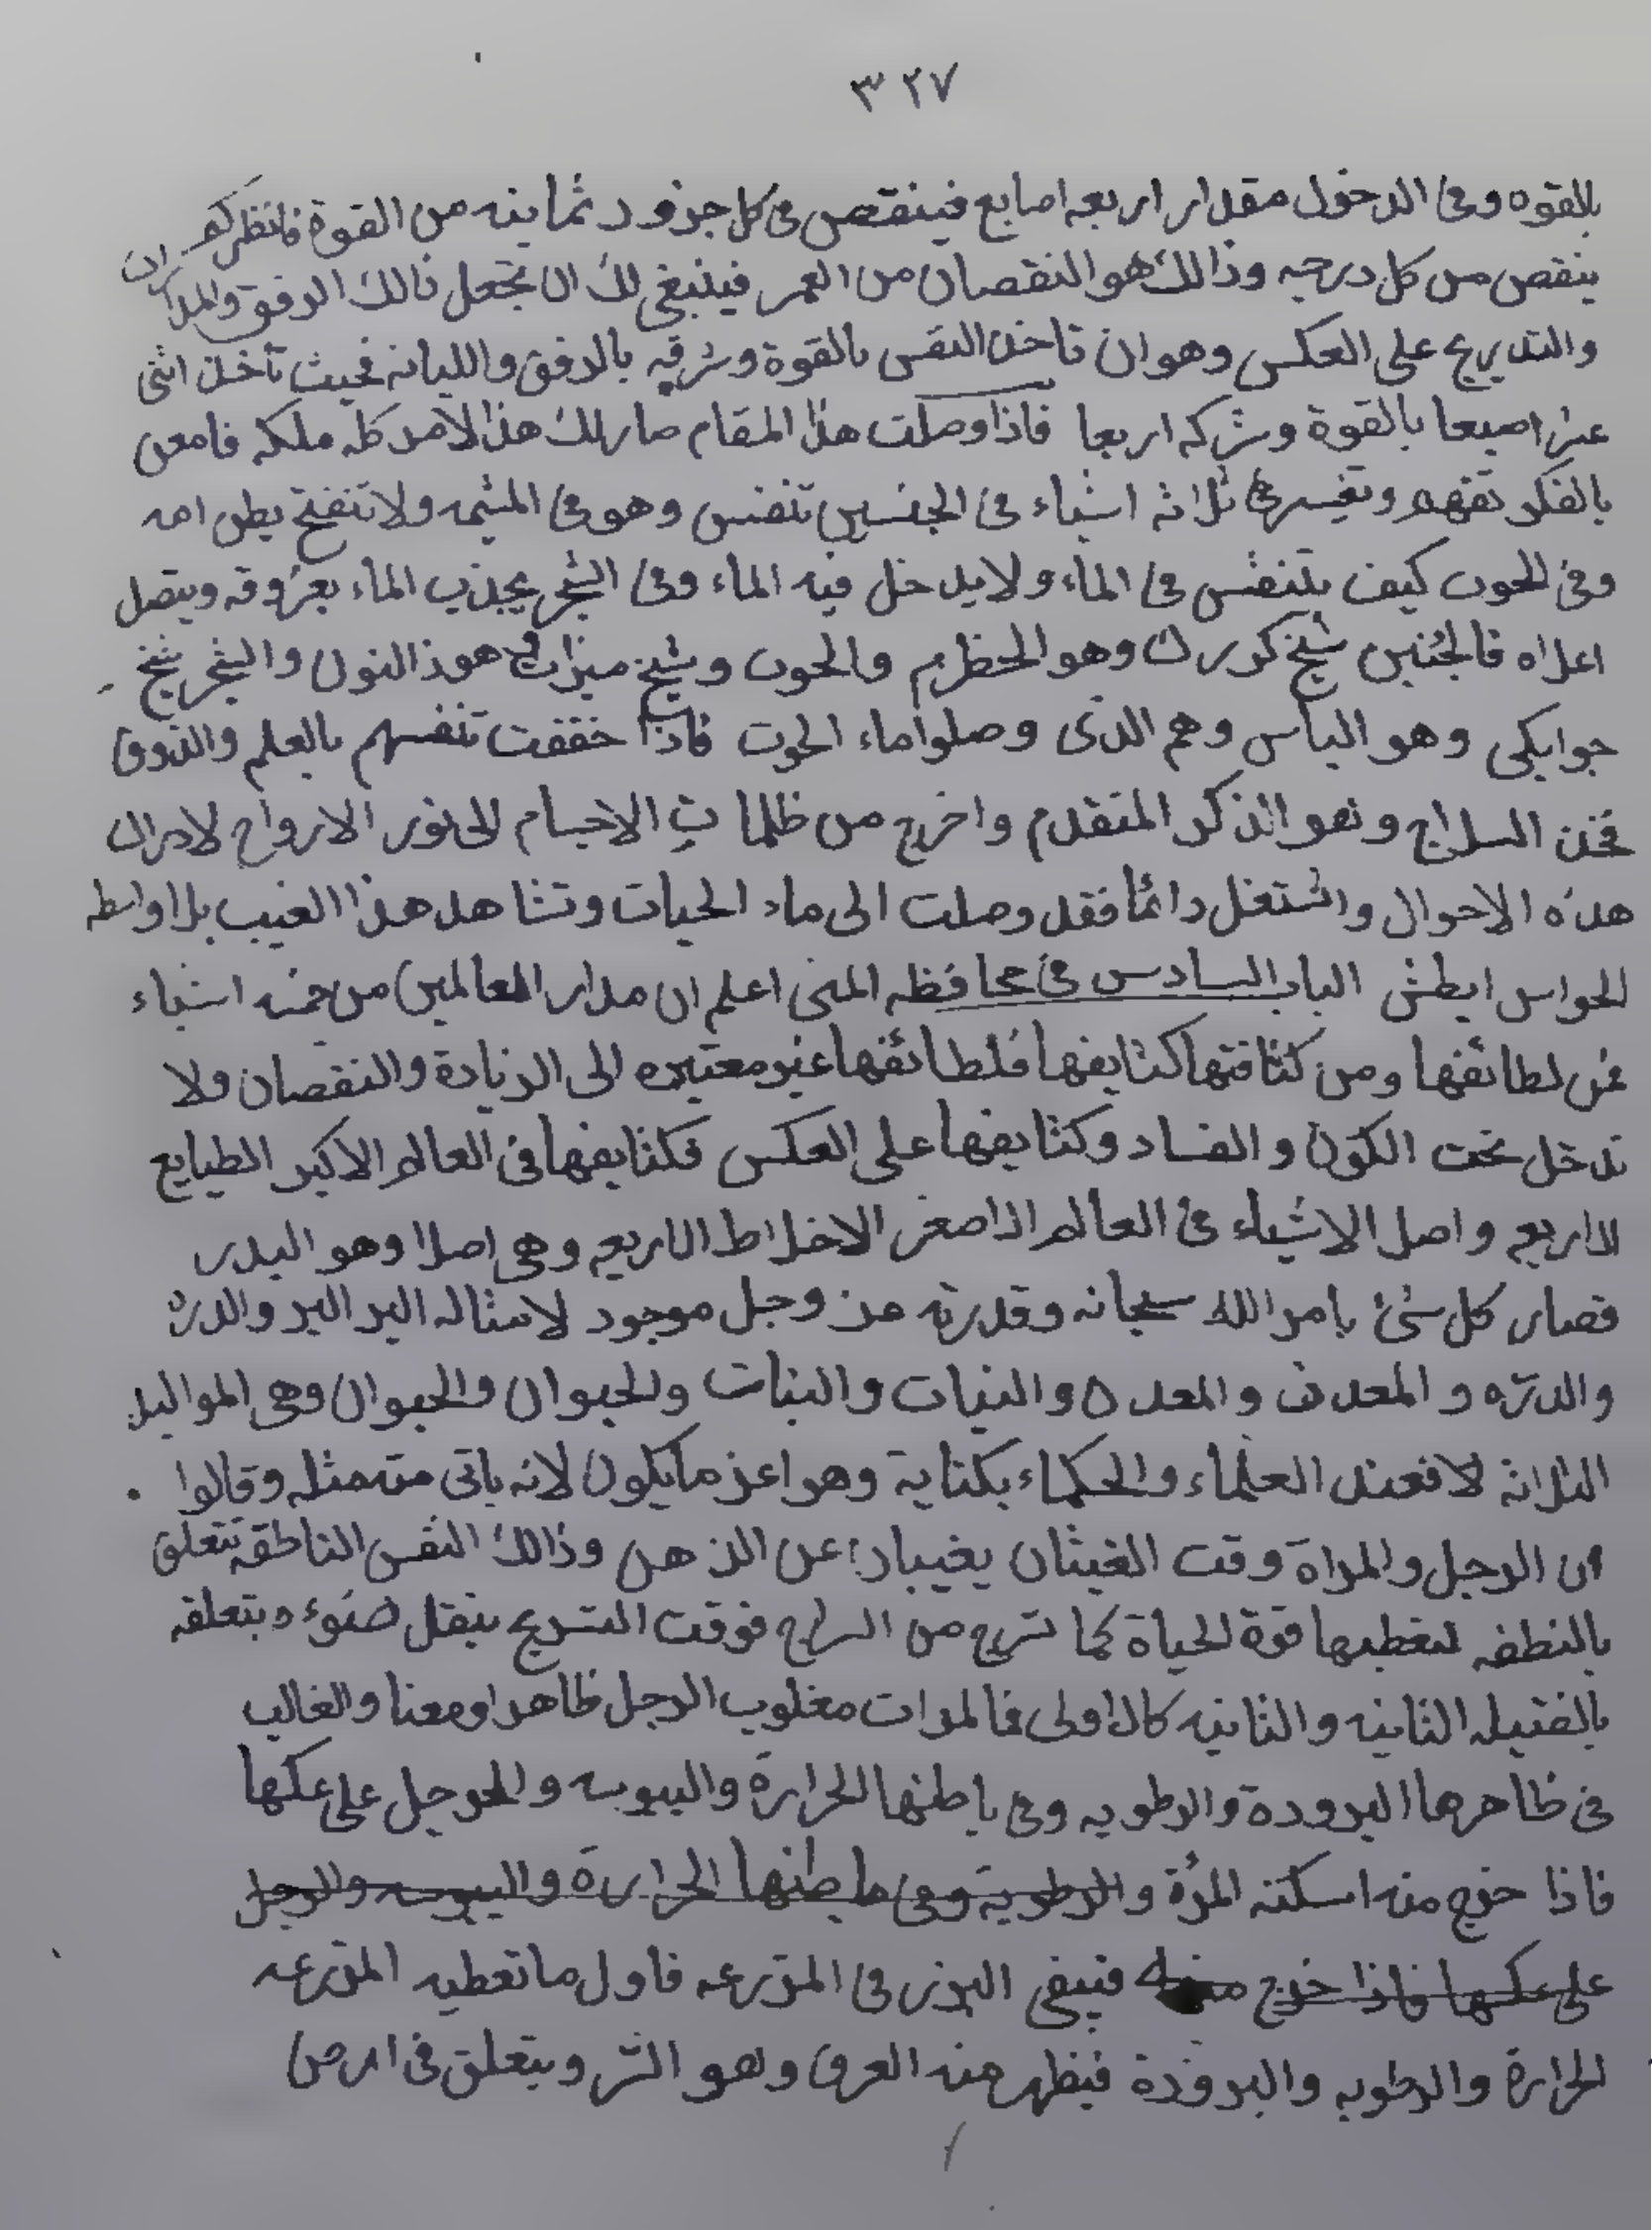 ٣٢٧
بالقوه وفى الدخول مقدار اربعه اصابع فينقص فى كل جزود ثمانيه من القوة فانظر كم
ينقص من كل درجه وذالك هو النقصان من العمر فينبغى لك ان تجعل ذالك الرفق والمدارات
والتدريج على العكس وهو ان تاخذ النفس بالقوة وترقه بالرفق والليانه فحيث تأخذ اثنى
عشر اصبعا بالقوة وتركه اربعا فاذا وصلت هذا المقام صار لك هذا الامر كله ملكه فامعن
بالفكر تفهم وتفيسرها ثلاثه اشياء فى الجنسين تنفس وهو فى المشيمه ولا تنفتح بطن امه
وفى الحوت كيف يتنفس فى الماء ولا يدخل فيه الماء وفى الشجر يجذب الماء بعروقه ويتصل
اعلاه فالجنين شيخ كورك وهو الخظرم والحوت وشيخ ميزات وهو ذالنون والشجر شيخ
جوابكى وهو الياس وهم الذى وصلوا ماء الحوت فاذا خففت تنفسهم بالعلم والذوق
فخذ السلاج وهو الذكر المتقدم واخرج من ظلمات الاجسام الى نور الارواح لادراك
هذه الاحوال واشتغل دائما فقد وصلت الى ماء الحيات وتشاهد هذا الغيب بلا واسطه
الحواس ابطش الباب السادس فى محافظه المنى اعلم ان مدار العالمين من خمسه اشياء
فمن لطائفها ومن كثافتها كثايفها فلطائفها غير معتبره الى الزيادة والنقصان ولا
تدخل تحت الكون والفساد وكثايفها على العكس فكثايفها فى العالم الاكبر الطبايع
الاربعه واصل الاشياء فى العالم الاصغر الاخلاط الاربعه وهى اصلا وهو البدر
فصار كل شئ بامر الله سبحانه وقدرته عز وجل موجود لامثاله البر البر والدره
والدرّه والمعدن والمعدن والنبات والنبات والحيوان والحيوان وهى المواليد
الثلاثة لا فعند العلماء والحكماء بكناية وهو اعز ما يكون لانه ياتى منه مثله وقالوا
ان الرجل والمراة وقت الغيثان يغيبان عن الذهن وذالك النفس الناطقه تتعلق
بالنطفه لتعطيها قوة الحياة كما تسرج من السراج فوقت التسريج ينقل ضوءه بتعلقه
بالفتيله الثانيه والثانيه كالاولى فالمرات مغلوب الرجل ظاهرا ومعنا والغالب
فى ظاهرها البرودة والرطوبه وفى باطنها الحرارة واليبوسه والحرجل على عكسها
فاذا خرج منه اسكنه المرٔة والرطوبة وفى باطنها الحرارة واليبوسه والرجل
على عكسها فاذا خرج منه فيبقى البزر فى المزرعه فاول ما تعطيه المزرعه
الحرارة والرطوبه والبرودة فيظهر منه العرق وهو السر ويتعلق فى ارض